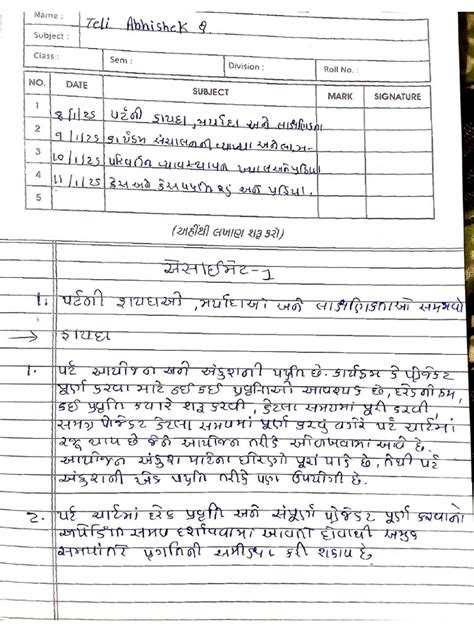 Name : Teli Abhishek G.
Subject :
Class : Sem : Division : Roll No. :
NO. DATE SUBJECT MARK SIGNATURE
1 8/1/25 પર્ટની ફાયદા, મર્યાદા અને લાક્ષણિકતા
2 9/1/25 કાર્યક્રમ સંચાલનની વ્યાખ્યા અને લાભ-
3 10/1/25 પરિવર્તન વ્યવસ્થાપન ખ્યાલ અને પ્રક્રિયા
4 11/1/25 કેસ અને કેસ પધ્ધતિ શું અને પ્રક્રિયા.
5
(અહીંથી લખાણ શરૂ કરો)
એસાઈમેંટ-1
1. પર્ટની ફાયદાઓ, મર્યાદાઓ અને લાક્ષણિકતાઓ સમજાવો
→ ફાયદા
1. પર્ટ આયોજન અને અંકુશની પધ્ધતિ છે. કાર્યક્રમ કે પ્રોજેકટ
પૂર્ણ કરવા માટે કઈ કઈ પ્રવૃતિઓ આવશ્યક છે, દરેકનો ક્રમ,
કઈ પ્રવૃતિ કયારે શરૂ કરવી, કેટલા સમયમાં પૂરી કરવી,
સમગ્ર પ્રોજેકટ કેટલા સમયમાં પૂર્ણ કરવું વગેરે પર્ટ ચાર્ટમાં
રજૂ થાય છે જેને આયોજન તરીકે ઓળખવામાં આવે છે.
આયોજન અંકુશ માટેના ધોરણો પૂરાં પાડે છે, તેથી પર્ટ
અંકુશની એક પધ્ધતિ તરીકે પણ ઉપયોગી છે.
2. પર્ટ ચાર્ટમાં દરેક પ્રવૃતિ અને સંપૂર્ણ પ્રોજેકટ પૂર્ણ કરવાનો
અપેક્ષિત સમય દર્શાવવામાં આવતો હોવાથી અમુક
સમયાંતરે પ્રગતિની સમીક્ષા કરી શકાય છે.